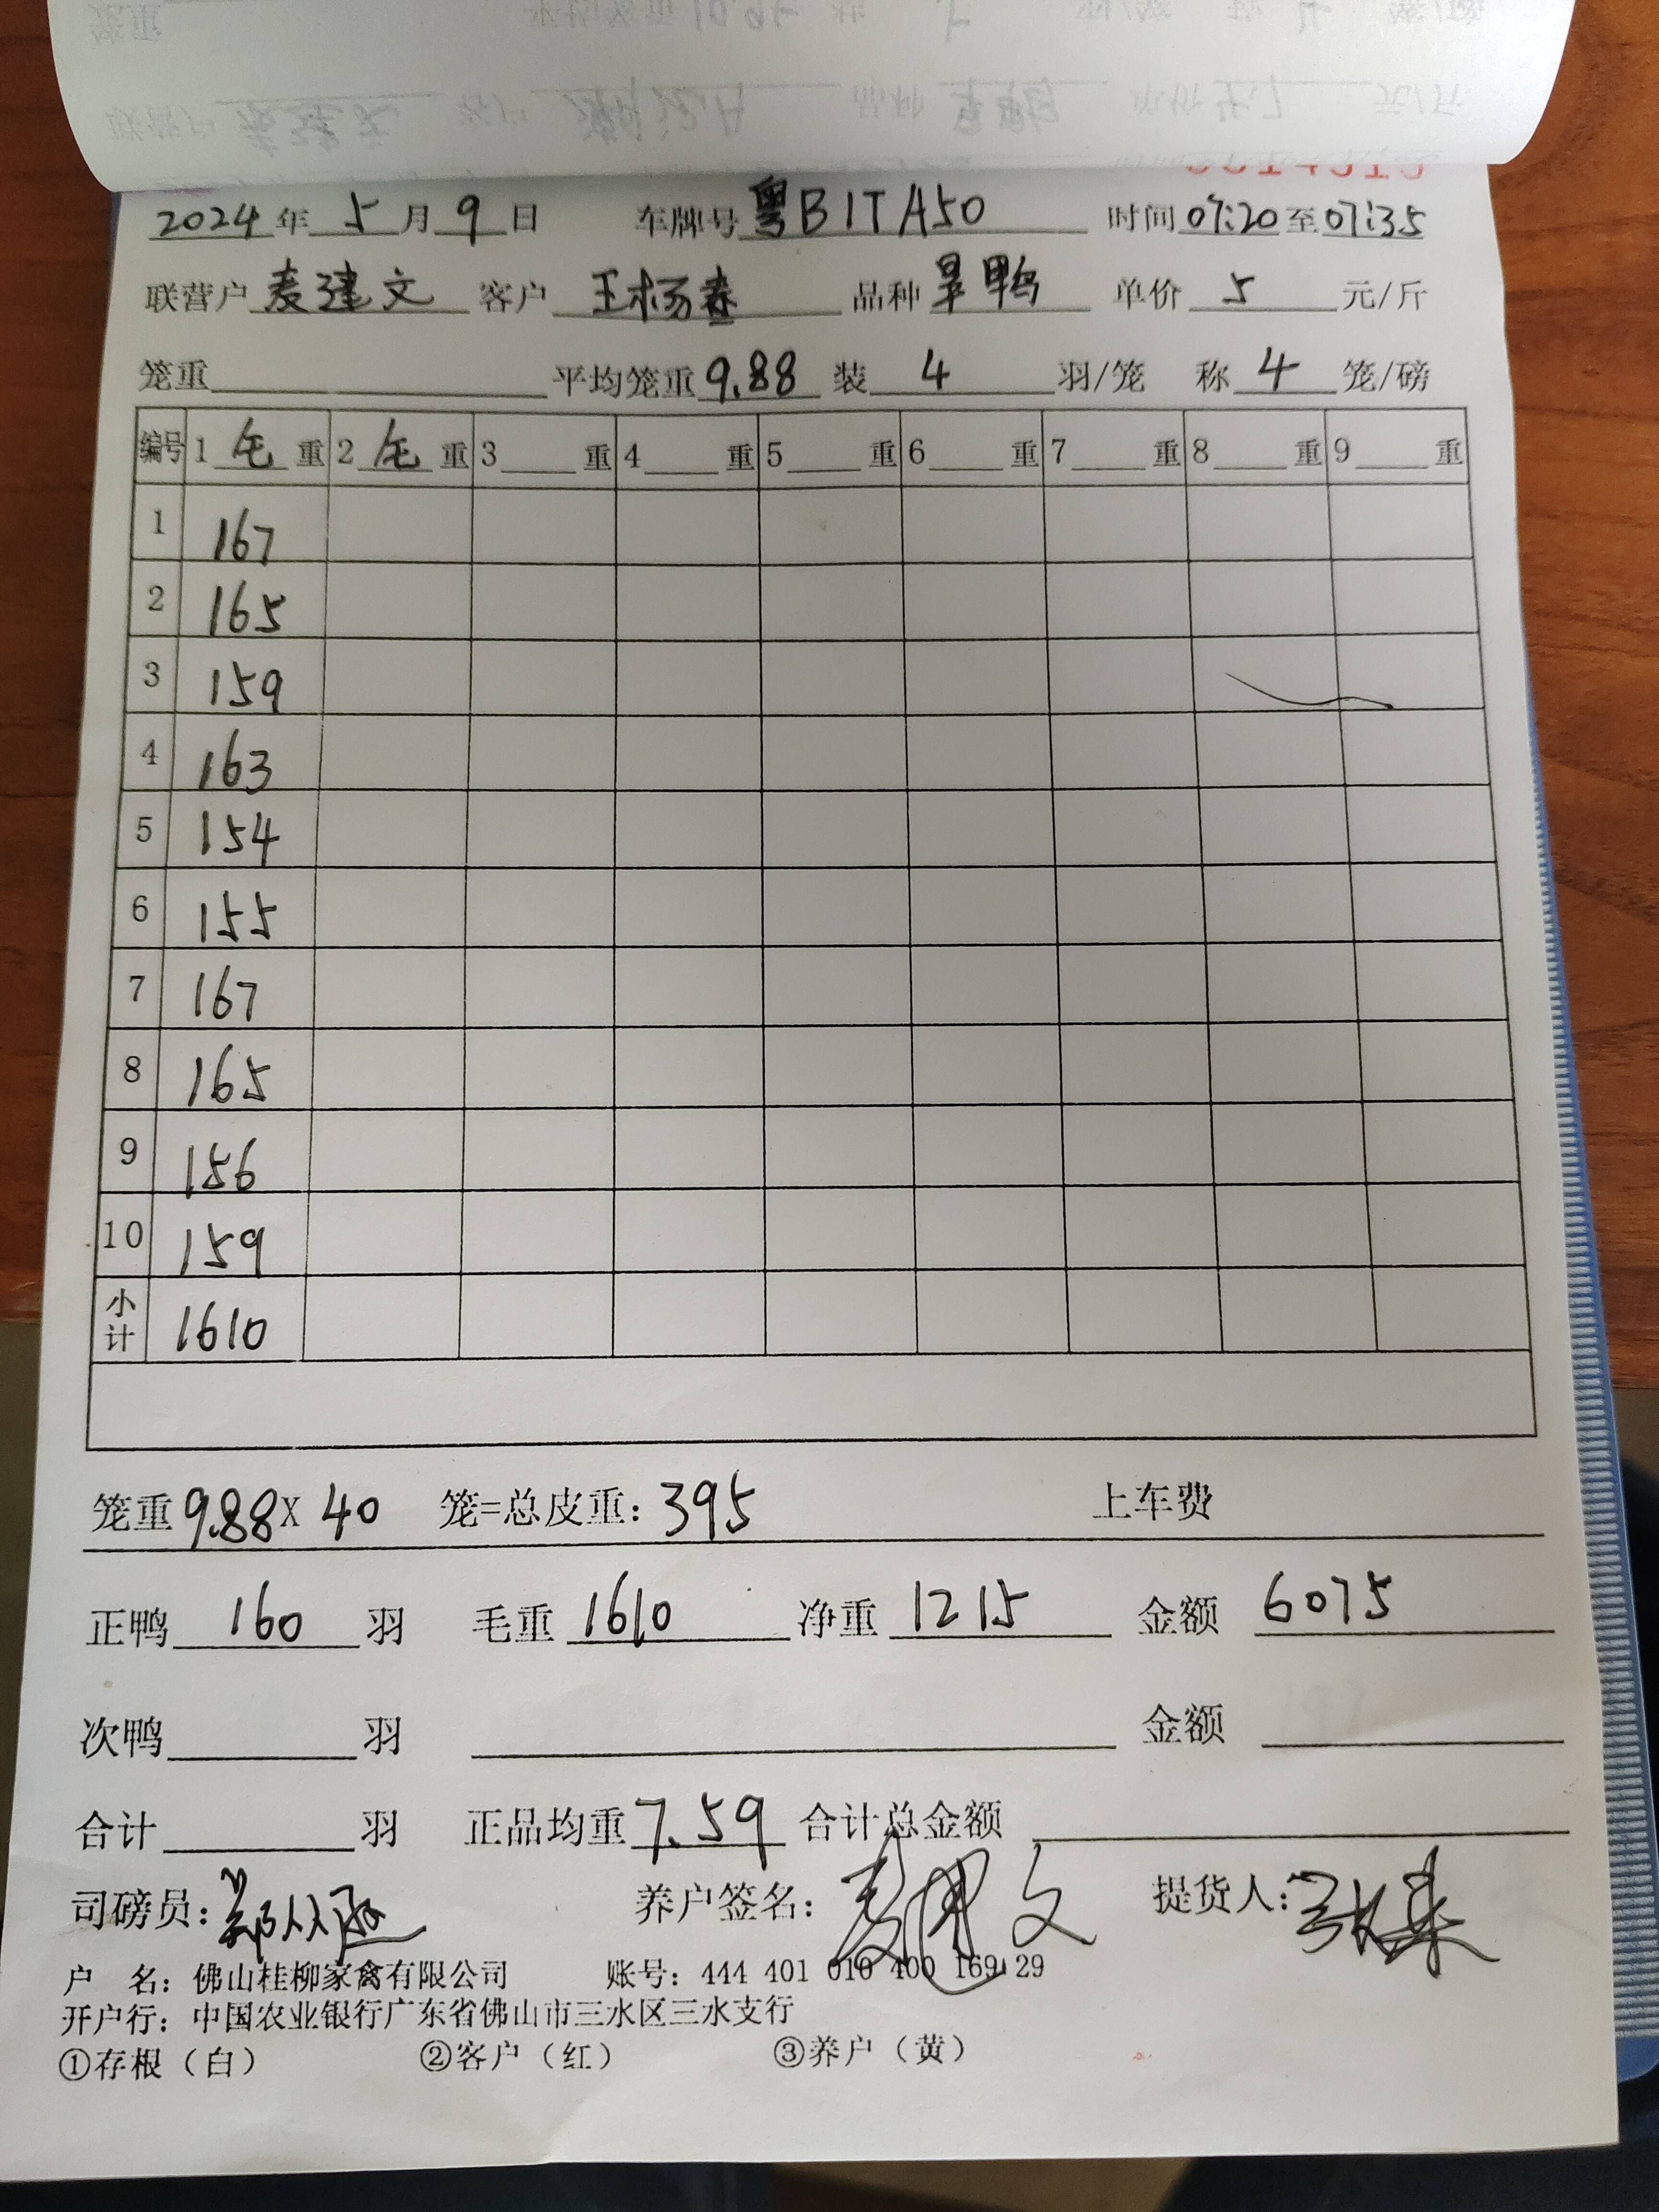 2024年 5月 9日 车牌号 粤B1TA50 时间 07:20 至 07:35
联营户 麦建文 客户 王杨春 品种 旱鸭 单价 5 元/斤
笼重 平均笼重 9.88 装 4 羽/笼 称 4 笼/磅
编号 1 毛 重 2 毛 重 3 重 4 重 5 重 6 重 7 重 8 重 9 重
1 167
2 165
3 159
4 163
5 154
6 155
7 167
8 165
9 156
10 159
小计 1610
笼重 9.88 X 40 笼=总皮重: 395 上车费
正鸭 160 羽 毛重 1610 净重 1215 金额 6075
次鸭 羽 金额
合计 羽 正品均重 7.59 合计总金额
司磅员: 养户签名: 麦建文 提货人:
户 名: 佛山桂柳家禽有限公司 账号: 444 401 010 400 169 29
开户行: 中国农业银行广东省佛山市三水区三水支行
①存根（白） ②客户（红） ③养户（黄）